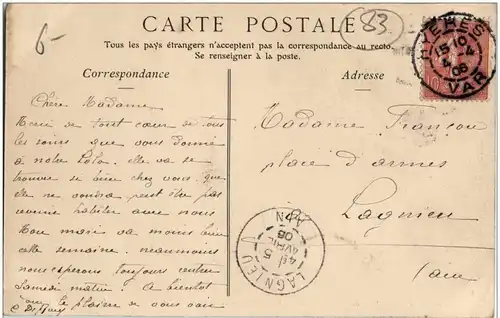 6-
CARTE POSTALE
83
Tous les pays étrangers n'acceptent pas la correspondance au recto.
Se renseigner à la poste.
Correspondance
Adresse
HYÈRES
15 10
4 -4
06
VAR
Chère Madame
Merci de tout cœur de tous
les soins que vous donné
à notre Lolo. elle va se
trouver si bien chez vous, que
elle ne voudra peut être pas
revenir habiter avec nous
mais va moins bien
cette semaine. neanmoins
nous esperons toujours rentrer
Samedi matin! A bientôt
le plaisir de vous voir
Madame Françon
place d'armes
Lagnieu
Ain
LAGNIEU
5
AVRIL
06
AIN